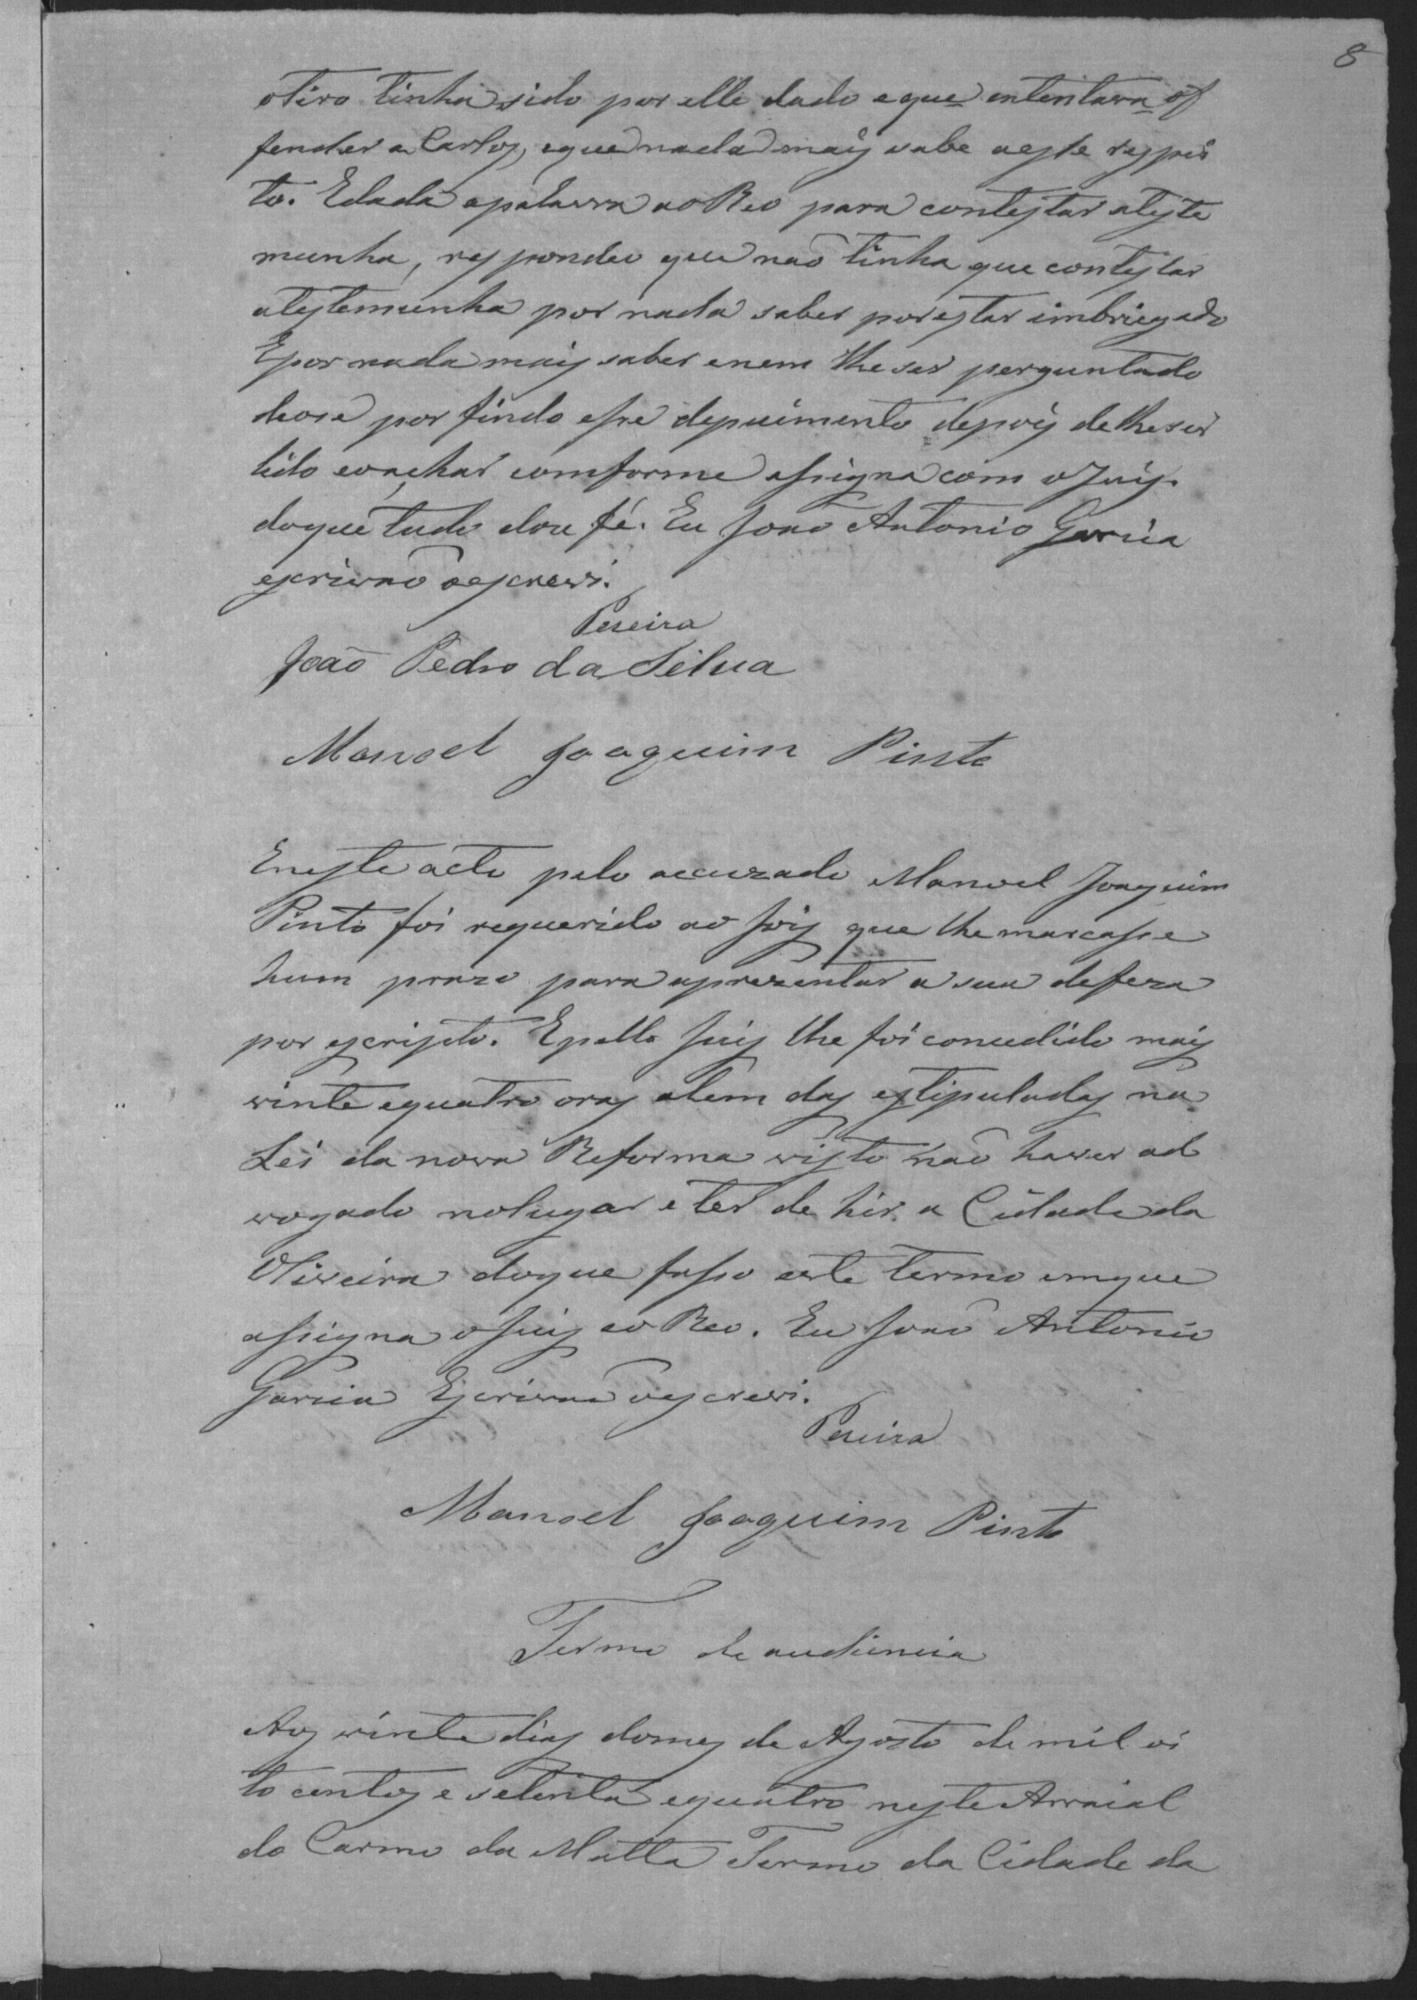 8
otiro tinha sido por elle dado e que intentava of
fender a Carlos, e que nada mais sabe a este respei
to. E dada a palavra ao Reo para contestar a teste
munha, respondeo que não tinha que contestar
a testemunha por nada saber por estar imbriegado
E por nada mais saber e nem lhe ser perguntado
deose por findo esse depuimento depois de lhe ser
lido e o achar comforme assigna com o Juis.
do que tudo dou fé. Eu João Antonio Garcia
escrivão o escrevi.
Pereira
João Pedro da Silva
Manoel Joaquim Pinto
E neste acto pelo accuzado Manoel Joaquim
Pinto foi requerido ao Juis que lhe marcasse
hum prazo para aprezentar a sua defeza
por escripto. E pello Juis lhe foi concedido mais
vinte e quatro oras alem das estipuladas na
Lei da nova Reforma visto não haver ad
vogado no lugar e ter de hir a Cidade da
Oliveira do que fasso este termo em que
assigna o Juis e o Reo. Eu João Antonio
Garcia Escrivão o escrevi.
Pereira
Manoel Joaquim Pinto
Termo de audiencia
Aos vinte dias do mes de Agosto de mil oi
to centos e setenta e quatro neste Arraial
do Carmo da Matta Termo da Cidade da